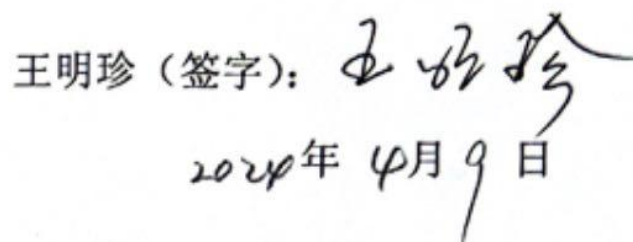 王明珍（签字）：王明珍
2024年 4月9日